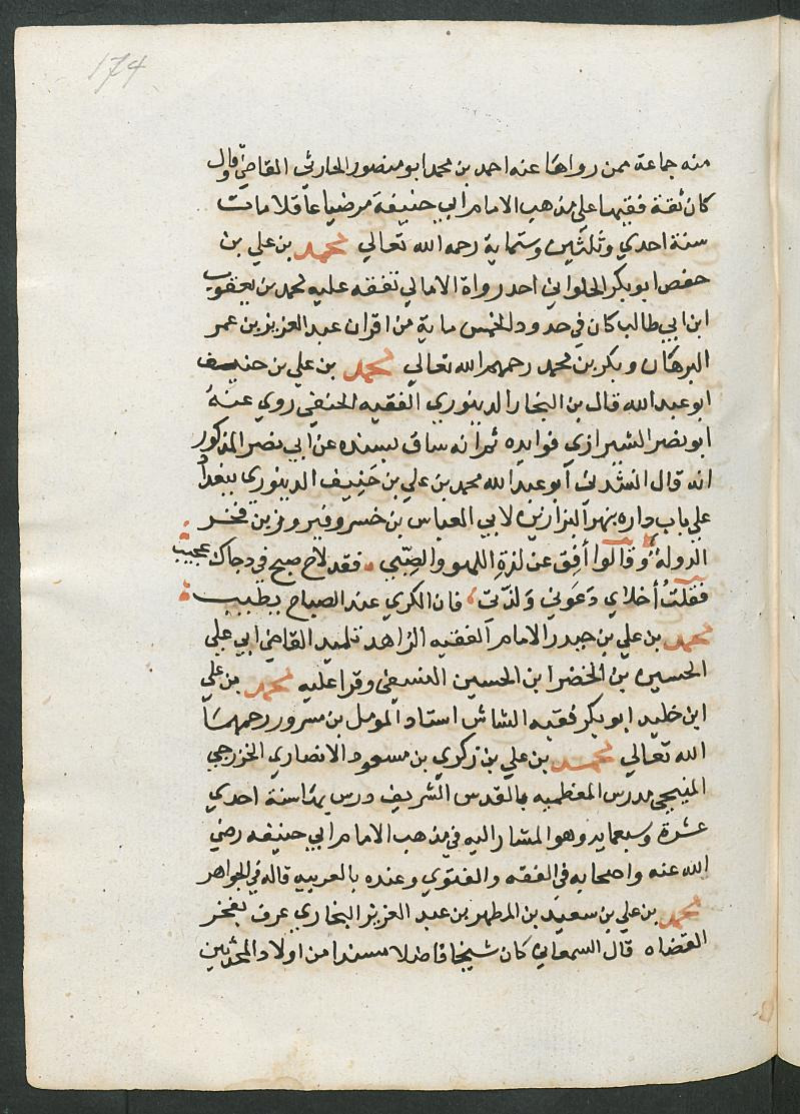 174
منه جماعة ممن رواها عنه احمد بن محمد ابو منصور الحارثي القاضي وقال
كان ثقة فقيها علي مذهب الامام ابي حنيفة مرضيا عاقلا مات
سنة احدي وثلثين وستماية رحمه الله تعالي محمد بن علي بن
حفص ابو بكر الحلواني احد رواة الامالي تفقه عليه محمد بن يعقوب
ابن ابي طالب كان في حدود الخمس ماية من اقران عبد العزيز بن عمر
البرهان وبكر بن محمد رحمهم الله تعالي محمد بن علي بن حنيف
ابو عبد الله قال بن النجار الدينوري الفقيه الحنفي روي عنه
ابو نصر الشيرازي فوايده ثم انه ساق بسنده عن ابي نصر المذكور
انه قال انشدني ابو عبد الله محمد بن علي بن حَنِيف الدينوري ببغداد
علي باب داره بنهر البزازين لابي العباس بن خسرو فيروز بن فخر
الدولة وقالوا أفِق عن لذة اللهو والصِبّي فقد لاح صبح في دجاك عجيب
فقلتُ أخلاي دَعَوني وَلذتي فان الكري عند الصباح يطيب
محمد بن علي بن حيدر الامام الفقيه الزاهد تلميذ القاضي ابي علي
الحسين بن الخضر ابن الحسين النسفي وقرا عليه محمد بن علي
ابن خليد ابو بكر فقيه الشاش استاد المومل بن مسرور رحمهما
الله تعالي محمد بن علي بن زكري بن مسعود الانصاري الخزرجي
المنبجي مدرس المعظميه بالقدس الشريف درس بها سنة احدي
عشرة وسبعمايه وهو المشار اليه في مذهب الامام ابي حنيفه رضي
الله عنه واصحابه في الفقه والفتوي وعنده بالعربيه قاله في الجواهر
محمد بن علي بن سعيد بن المطهر بن عبد العزيز البخاري عرف بفخر
القضاه قال السمعاني كان شيخا فاضلا مسندا من اولاد المحدثين